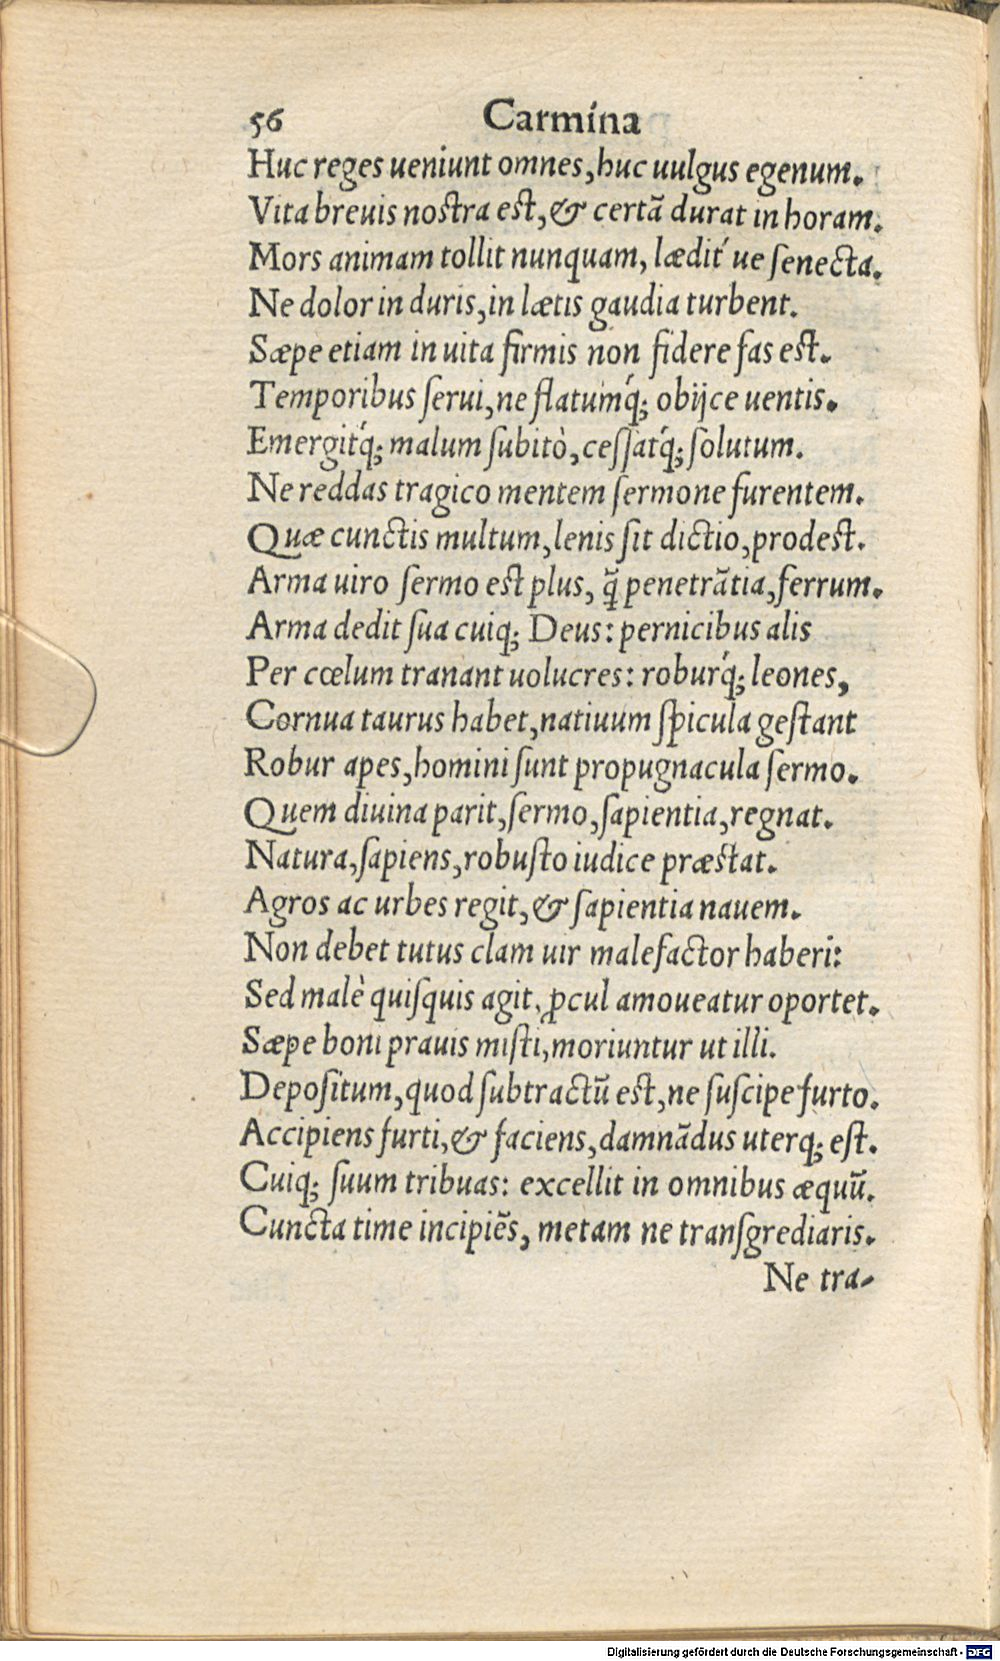 56 Carmina
Huc reges ueniunt omnes, huc uulgus egenum.
Vita breuis nostra est, & certã durat in horam.
Mors animam tollit nunquam, lædit´ue senecta.
Ne dolor in duris, in lætis gaudia turbent.
Sæpe etiam in uita firmis non fidere fas est.
Temporibus serui, ne flatumq́; obijce uentis.
Emergitq́; malum subitò, cessatq́; solutum.
Ne reddas tragico mentem sermone furentem.
Quæ cunctis multum, lenis sit dictio, prodest.
Arma uiro sermo est plus, q̃ penetrãtia, ferrum.
Arma dedit sua cuiq; Deus: pernicibus alis
Per cœlum tranant uolucres: roburq́; leones,
Cornua taurus habet, natiuum spicula gestant
Robur apes, homini sunt propugnacula sermo.
Quem diuina parit, sermo, sapientia, regnat.
Natura, sapiens, robusto iudice præstat.
Agros ac urbes regit, & sapientia nauem.
Non debet tutus clam uir malefactor haberi:
Sed malè quisquis agit, ꝓcul amoueatur oportet.
Sæpe boni prauis misti, moriuntur ut illi.
Depositum, quod subtractũ est, ne suscipe furto.
Accipiens furti, & faciens, damnãdus uterq; est.
Cuiq; suum tribuas: excellit in omnibus æquũ.
Cuncta time incipiẽs, metam ne transgrediaris.
Ne tra-
Digitalisierung gefördert durch die Deutsche Forschungsgemeinschaft - DFG